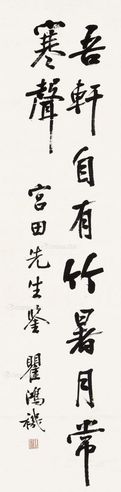 吾軒自有竹暑月常
寒聲
宮田先生鉴 瞿鴻禨